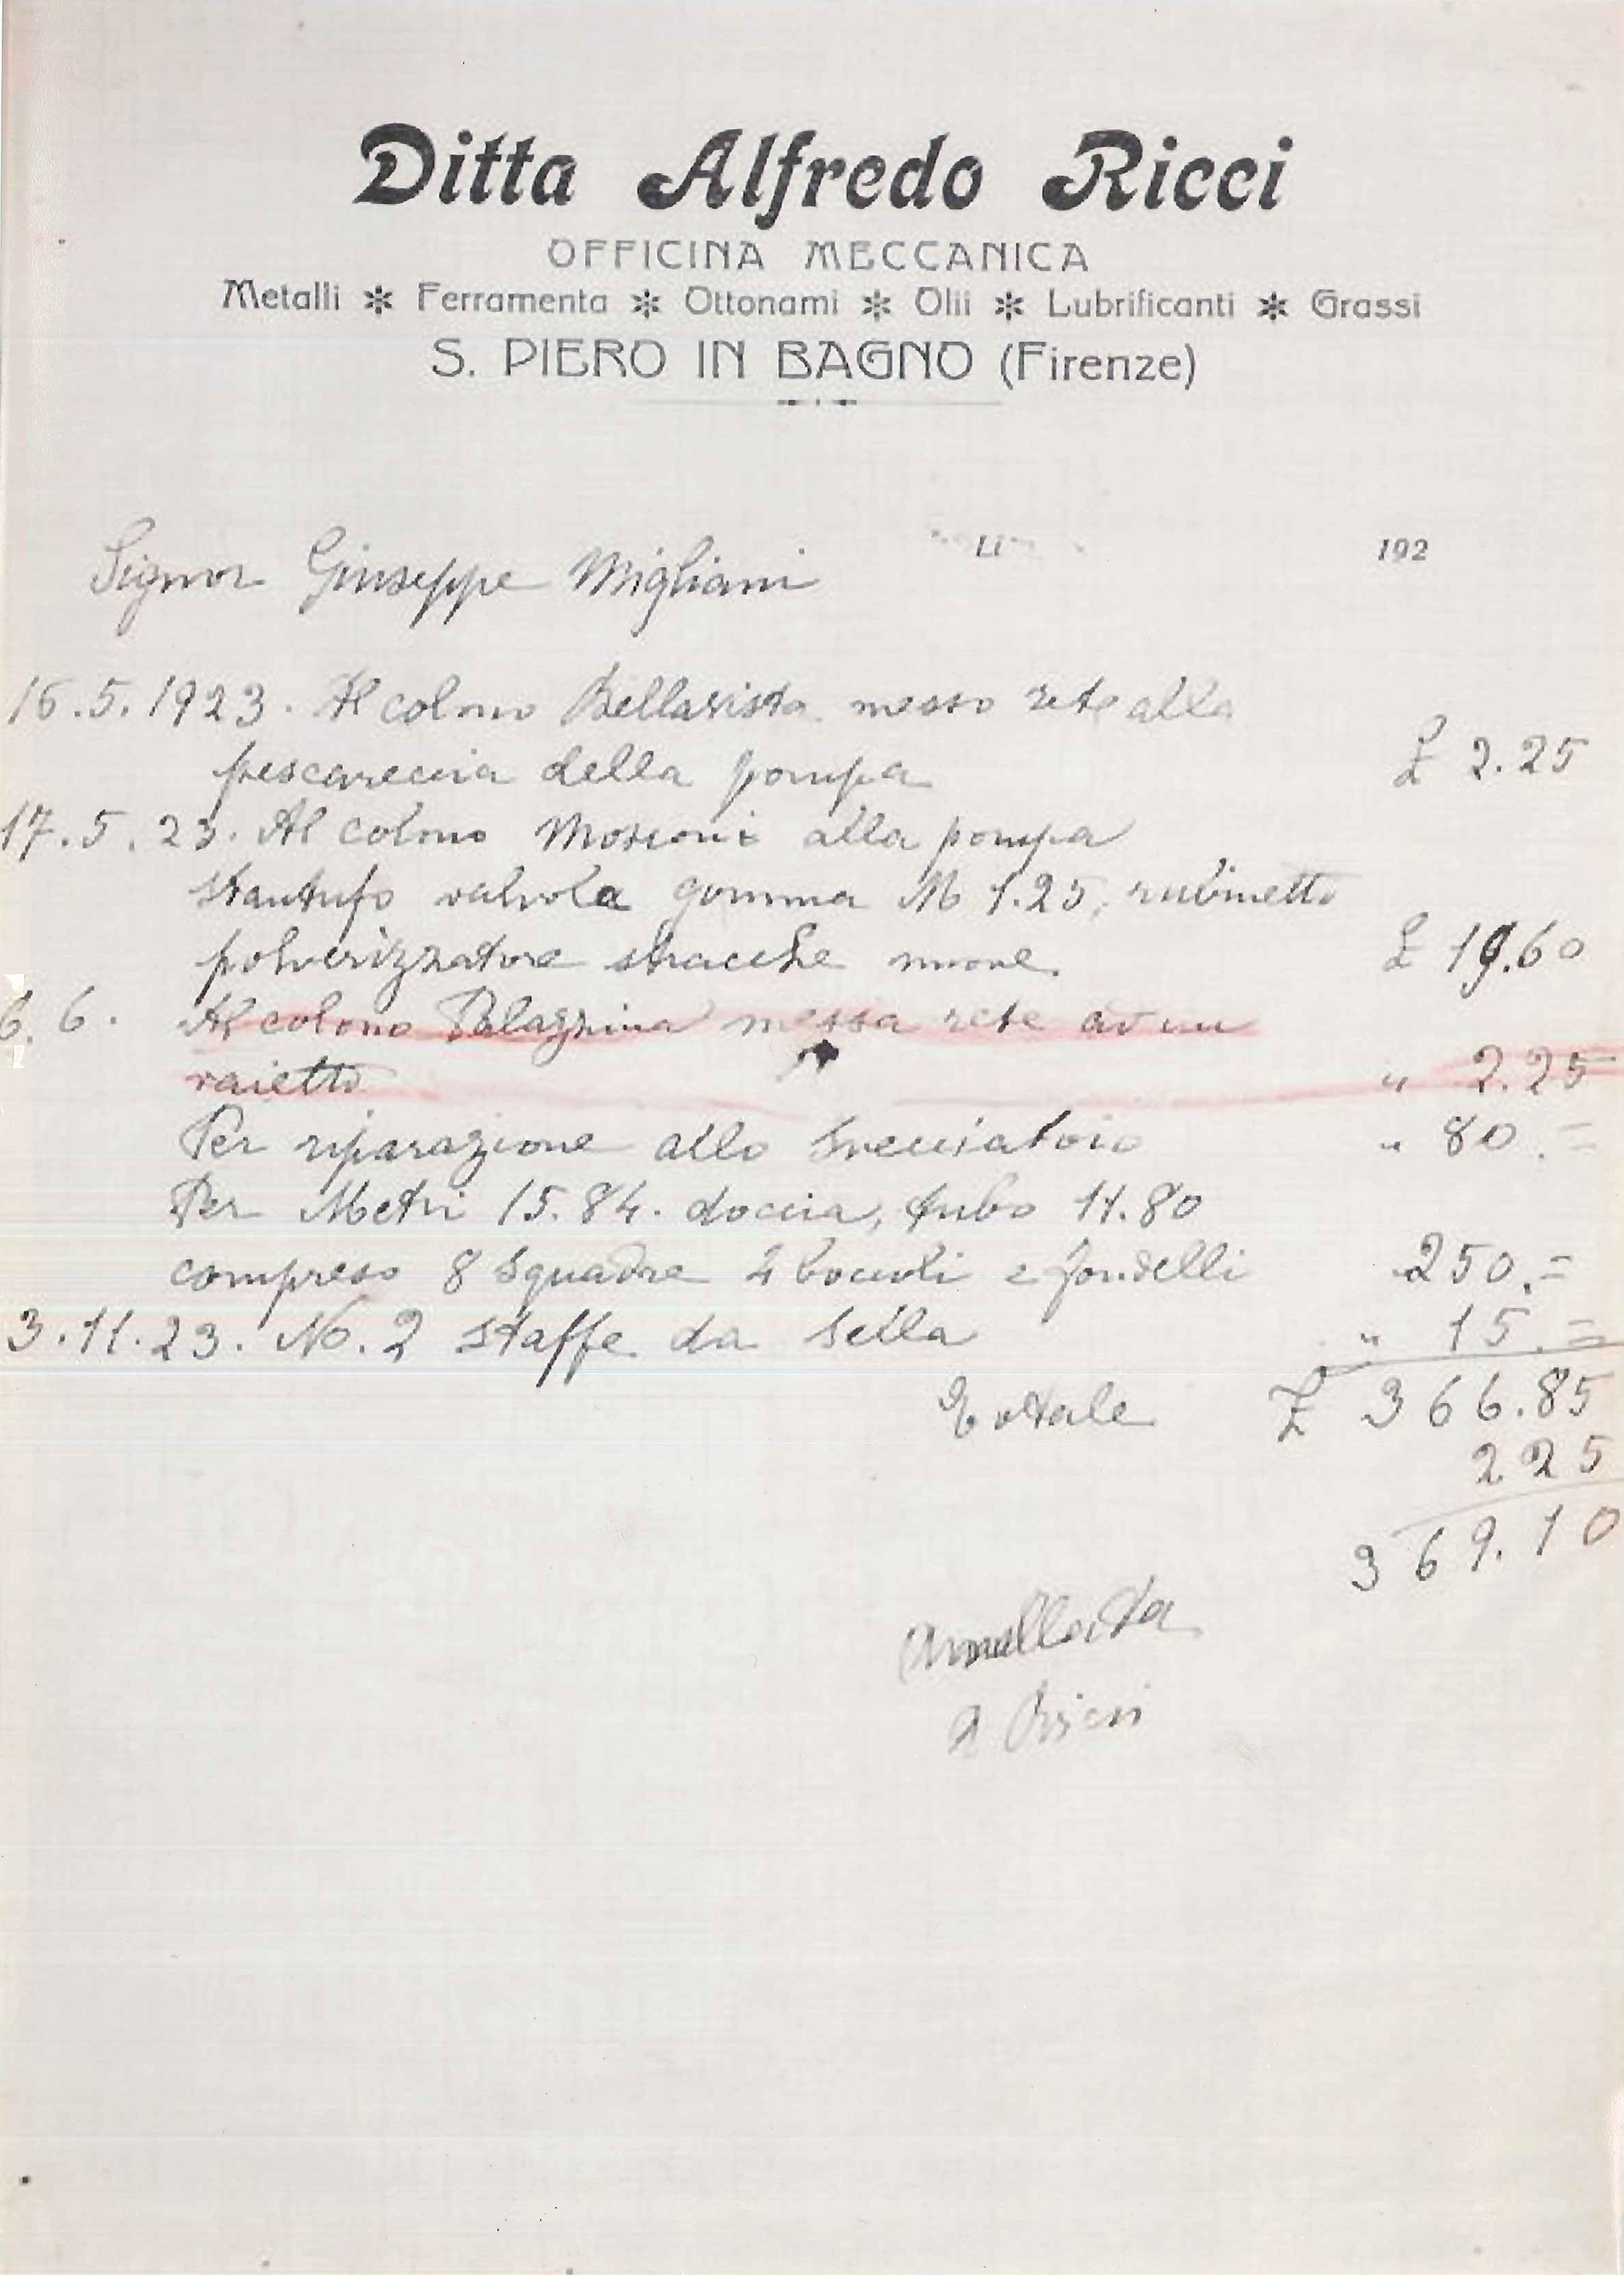 Ditta Alfredo Ricci
OFFICINA MECCANICA
Metalli * Ferramenta * Ottonami * Olii * Lubrificanti * Grassi
S. PIERO IN BAGNO (Firenze)
Li 192
Signor Giuseppe Migliani
16.5.1923. Al colono Bellavista messo rete alla
pescareccia della pompa £ 2.25
17.5.23. Al colono alla pompa
stantufo valvola gomma M 1.25, rubinetto
polverizzatore stracche nuove. £ 19.60
6.6. Al colono Palazzina messa rete ad un
raietto " 2.25
Per riparazione allo trecciatoio " 80.=
Per Metri 15.84. doccia, tubo 11.80
compreso 8 squadre 4 boccioli e fondelli 250.=
3.11.23. No. 2 staffe da sella " 15.=
Totale £ 366.85
225
369.10
Annullata
A Ricci